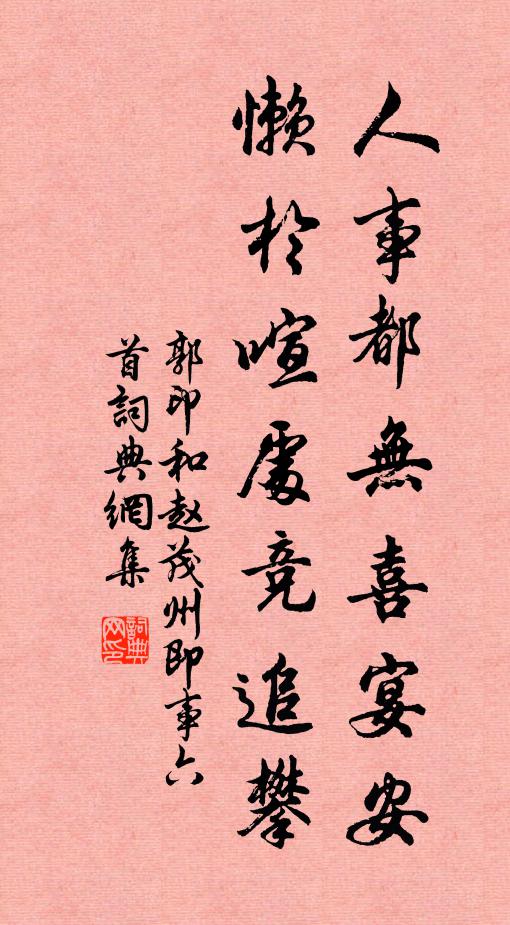 人事都無喜宴安
懶於喧處竞追攀
郭印和赵茂州即事六
首詞典網集
詞典网印